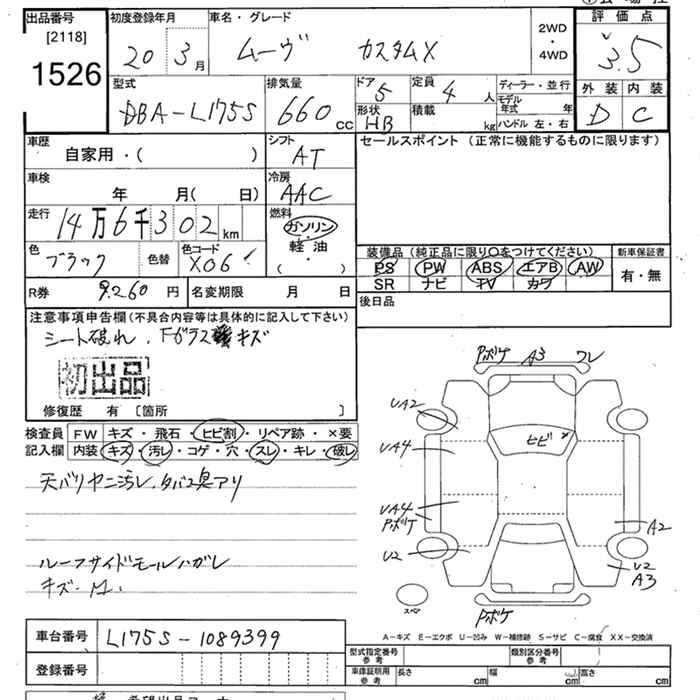 出品番号
[2118]
1526
初度登録年月
20 3月
車名・グレード
ムーヴ カスタムX
2WD
・
4WD
評価点
3.5
外装 内装
D C
型式
DBA-L175S
排気量
660 cc
ドア
5
定員
4 人
形状
HB
積載
kg
ディーラー・並行
モデル年式 年
ハンドル 左・右
車歴
自家用・( )
シフト
AT
セールスポイント (正常に機能するものに限ります)
車検
年 月( 日)
冷房
AAC
走行
14万6千302km
燃料
ガソリン
軽油
( ・ )
色
ブラック
色替
色コード
X06
装備品 (純正品に限り○をつけてください)
PS PW ABS エアB AW
SR ナビ TV カワ
新車保証書
有・無
R券 9,260円
名変期限 月 日
後日品
注意事項申告欄(不具合内容等は具体的に記入して下さい)
シート破れ、Fガラスキズ
初出品
修復歴 有 〔箇所 〕
検査員記入欄
FW キズ・飛石・ヒビ割・リペア跡・×要
内装 キズ・汚レ・コゲ・穴・スレ・キレ・破レ
天バリヤニ汚レ、タバコ臭アリ
ルーフサイドモールハガレ
キズ・
Pボケ A3 ワレ
UA2
ヒビ
UA4
UA4
Pボケ
A2
U2
U2
A3
スペア
Pボケ
A-キズ E-エクボ U-凹み W-補修跡 S-サビ C-腐食 XX-交換済
車台番号 L175S-1089399
登録番号
型式指定番号
参考
類別区分番号
参考
車庫証明用
参考
長さ cm
幅 cm
高さ cm